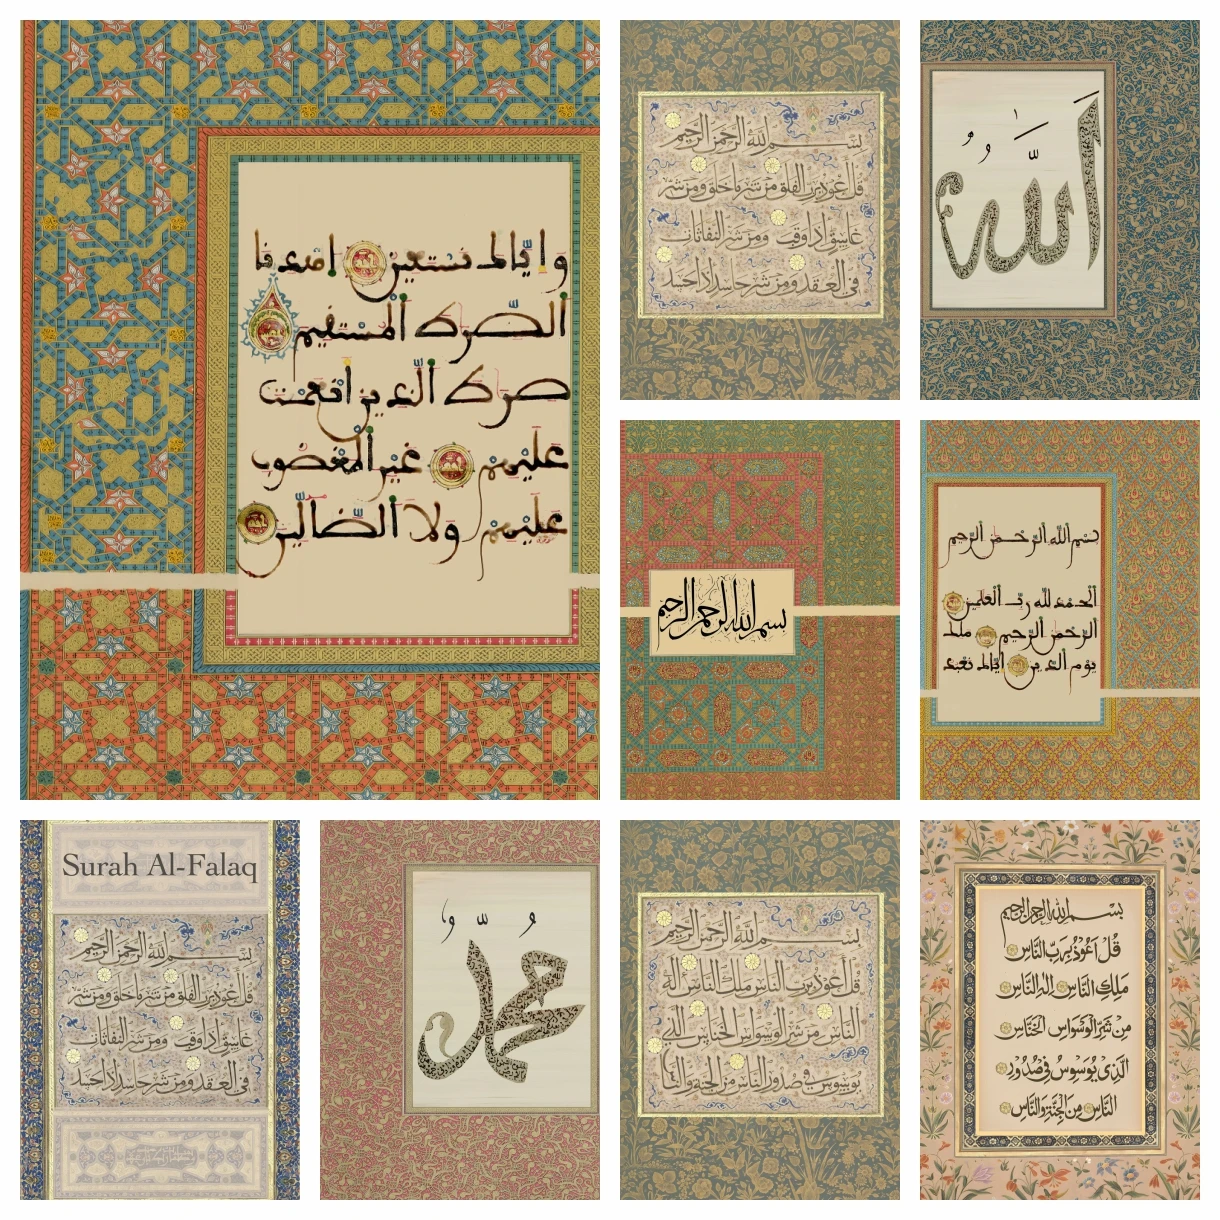 و اياك نستعين اهدنا
الصرط المستقيم
صرط الذين انعمت
عليهم غير المغضوب
عليهم ولا الضالين
بسم الله الرحمن الرحيم
قل أعوذ برب الفلق من شر ما خلق ومن شر
غاسق إذا وقب ومن شر النفاثات
في العقد ومن شر حاسد إذا حسد
الله
بسم الله الرحمن الرحيم
بسم الله الرحمن الرحيم
الحمد لله رب العلمين
الرحمن الرحيم ملك
يوم الدين اياك نعبد
Surah Al-Falaq
بسم الله الرحمن الرحيم
قل أعوذ برب الفلق من شر ما خلق ومن شر
غاسق إذا وقب ومن شر النفاثات
في العقد ومن شر حاسد إذا حسد
محمد
بسم الله الرحمن الرحيم
قل أعوذ برب الناس ملك الناس إله
الناس من شر الوسواس الخناس الذي
يوسوس في صدور الناس من الجنة والناس
بسم الله الرحمن الرحيم
قُلْ أَعُوذُ بِرَبِّ النَّاسِ
مَلِكِ النَّاسِ إِلَهِ النَّاسِ
مِنْ شَرِّ الْوَسْوَاسِ الْخَنَّاسِ
الَّذِي يُوَسْوِسُ فِي صُدُورِ
النَّاسِ مِنَ الْجِنَّةِ وَالنَّاسِ